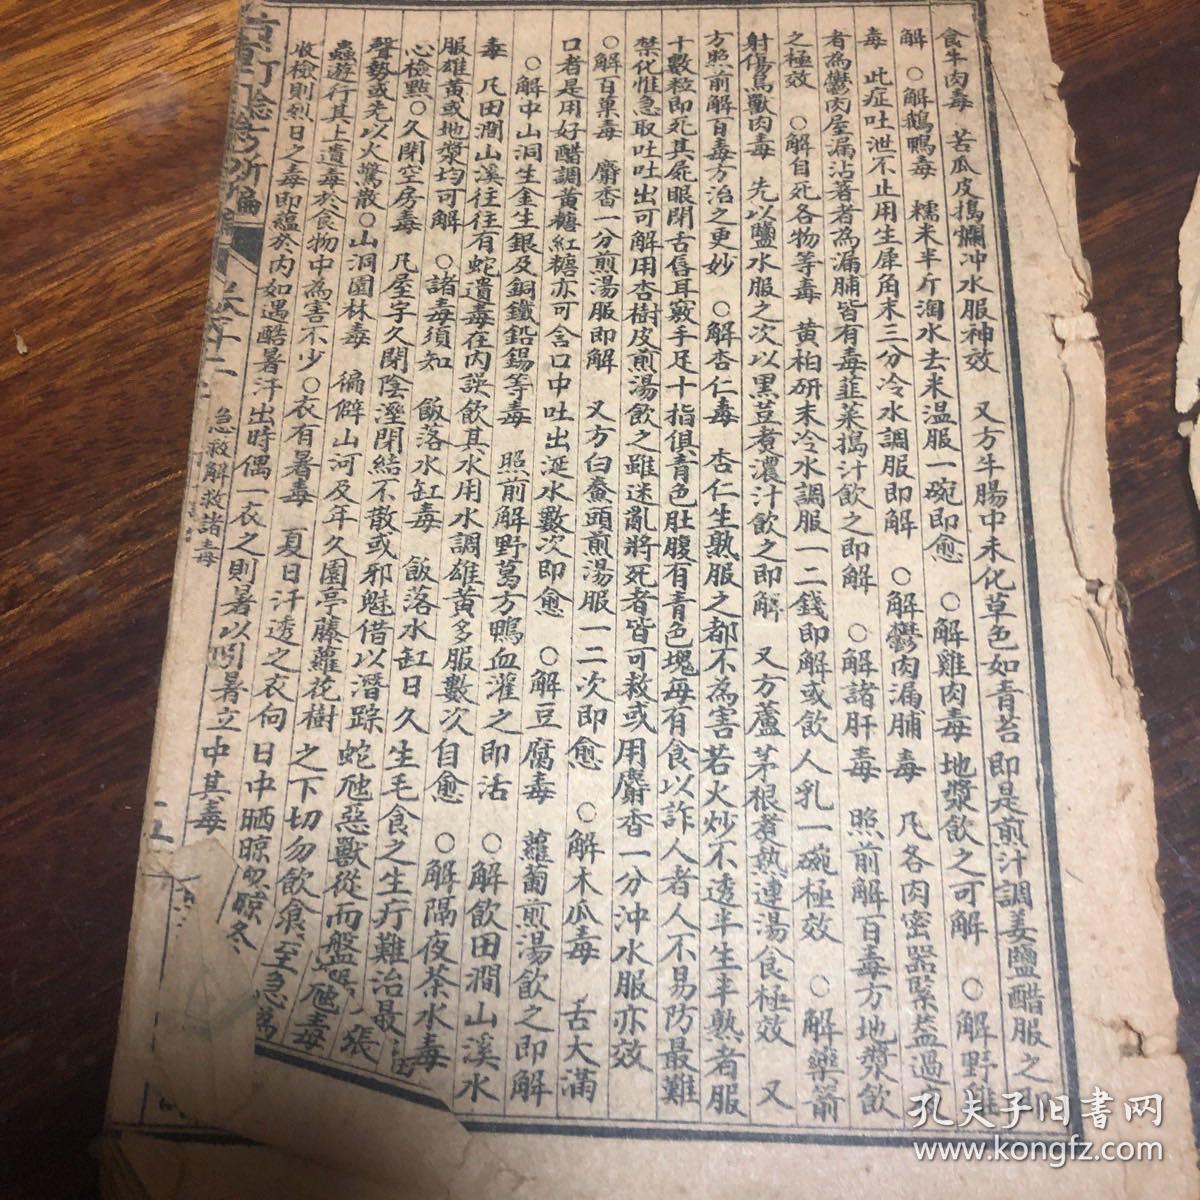 食牛肉毒 苦瓜皮搗爛冲水服神效 又方牛腸中未化草色如青苔即是煎汁調姜鹽醋服之即
解 ○解鵝鴨毒 糯米半斤淘水去米温服一碗即愈 ○解雞肉毒 地漿飲之可解 ○解野雞
毒 此症吐泄不止用生犀角末三分冷水調服即解 ○解鬱肉漏脯毒 凡各肉密器緊蓋過夜
者為鬱肉屋漏沾著者為漏脯皆有毒韮菜搗汁飲之即解 ○解諸肝毒 照前解百毒方地漿飲
之極效 ○解自死各物等毒 黄柏研末冷水調服一二錢即解或飲人乳一碗極效 ○解藥箭
射傷鳥獸肉毒 先以鹽水服之次以黑荳煑濃汁飲之即解 又方蘆茅根煮熟連湯食極效 又
方照前解百毒方治之更妙 ○解杏仁毒 杏仁生熟服之都不為害若火炒不透半生半熟者服
十數粒即死其屍眼閉舌唇耳竅手足十指俱青色肚腹有青色塊每有食以詐人者人不易防最難
禁化惟急取吐吐出可解用杏樹皮煎湯飲之雖迷亂將死者皆可救或用麝香一分冲水服亦效
○解百菓毒 麝香一分煎湯服即解 又方白鯗頭煎湯服一二次即愈 ○解木瓜毒 舌大滿
口者是用好醋調黄糖紅糖亦可含口中吐出涎水數次即愈 ○解豆腐毒 蘿蔔煎湯飲之即解
○解中山洞生金生銀及銅鐵鉛錫等毒 照前解野葛方鴨血灌之即活 ○解飲田澗山溪水
毒 凡田澗山溪往往有蛇遺毒在內誤飲其水用水調雄黄多服數次自愈 ○解隔夜茶水毒
服雄黄或地漿均可解 ○諸毒須知 飯落水缸毒 飯落水缸日久生毛食之生疔難治最
心檢點○久閉空房毒 凡屋宇久閉陰溼閉結不散或邪魅借以潛踪蛇虺惡獸從而盤 張
聲勢或先以火驚散○山洞園林毒 偏僻山河及年久園亭藤蘿花樹之下切勿飲食至 虺毒
蟲遊行其上遺毒於食物中為害不少○衣有暑毒 夏日汗透之衣向日中晒晾 急
收檢則烈日之毒即蘊於內如遇酷暑汗出時偶一衣之則暑以引暑立中其毒
急救解救諸毒
孔夫子旧書网
www.kongfz.com